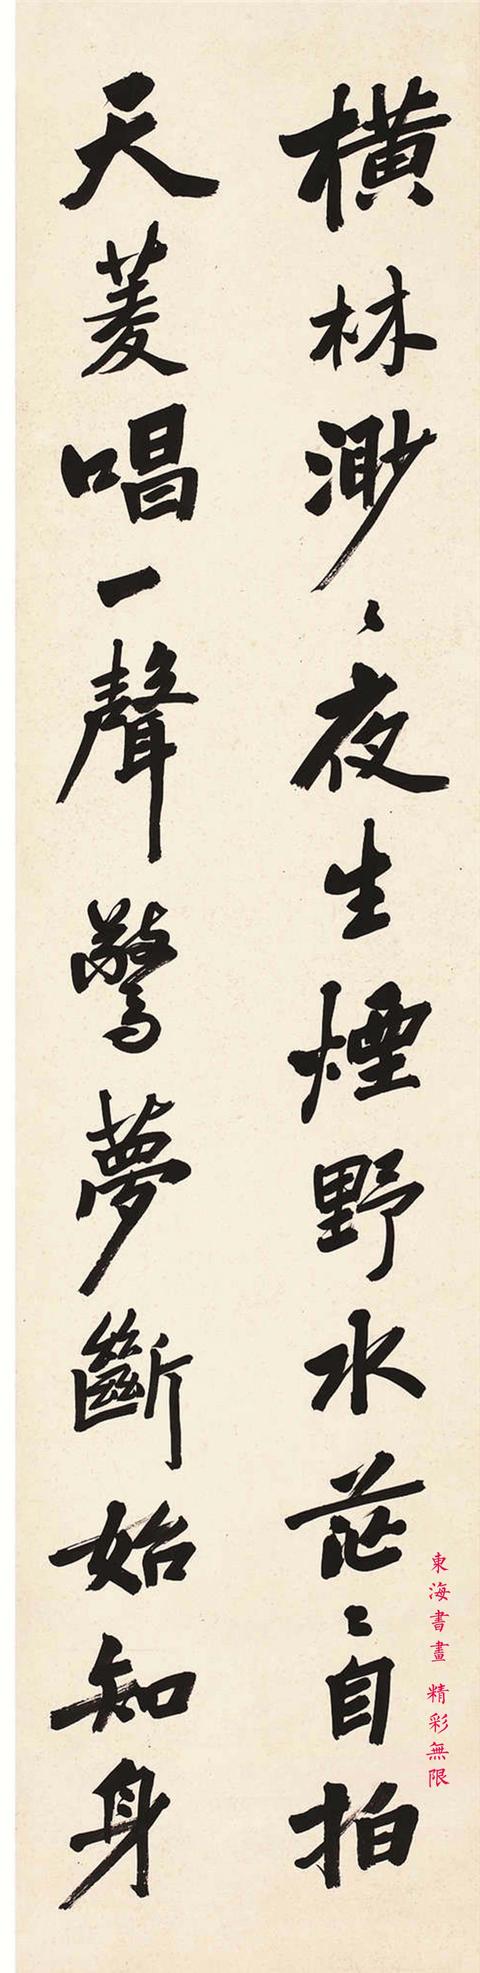 橫林渺〻夜生煙野水茫〻自拍
天菱唱一聲驚夢斷始知身
東海書畫 精彩無限